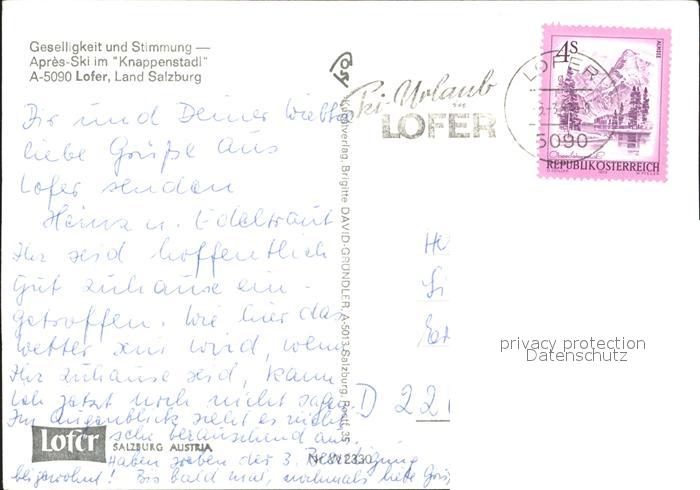 Geselligkeit und Stimmung —
Après-Ski im "Knappenstadl"
A-5090 Lofer, Land Salzburg
Dir und Deiner
liebe Grüße aus
Lofer senden
Heinz u. Edeltraut
Ihr seid hoffentlich
gut zuhause ein-
getroffen. Wie hier das
Wetter sein wird, wenn
Ihr zuhause seid, kann
ich jetzt noch nicht sagen.
Im Augenblick sieht es nicht
sche berauschend aus.
Haben soeben der 3. Beerdigung
beigewohnt! Bis bald mal, nochmals liebe
Lofer
SALZBURG AUSTRIA
Nr. SV 2330
Kunstverlag, Brigitte DAVID-GRÜNDLER, A-5013 Salzburg, Postf. 35
Ski-Urlaub
in
LOFER
LOFER
5090
4S
ALMSEE
REPUBLIK ÖSTERREICH
D 22
privacy protection
Datenschutz